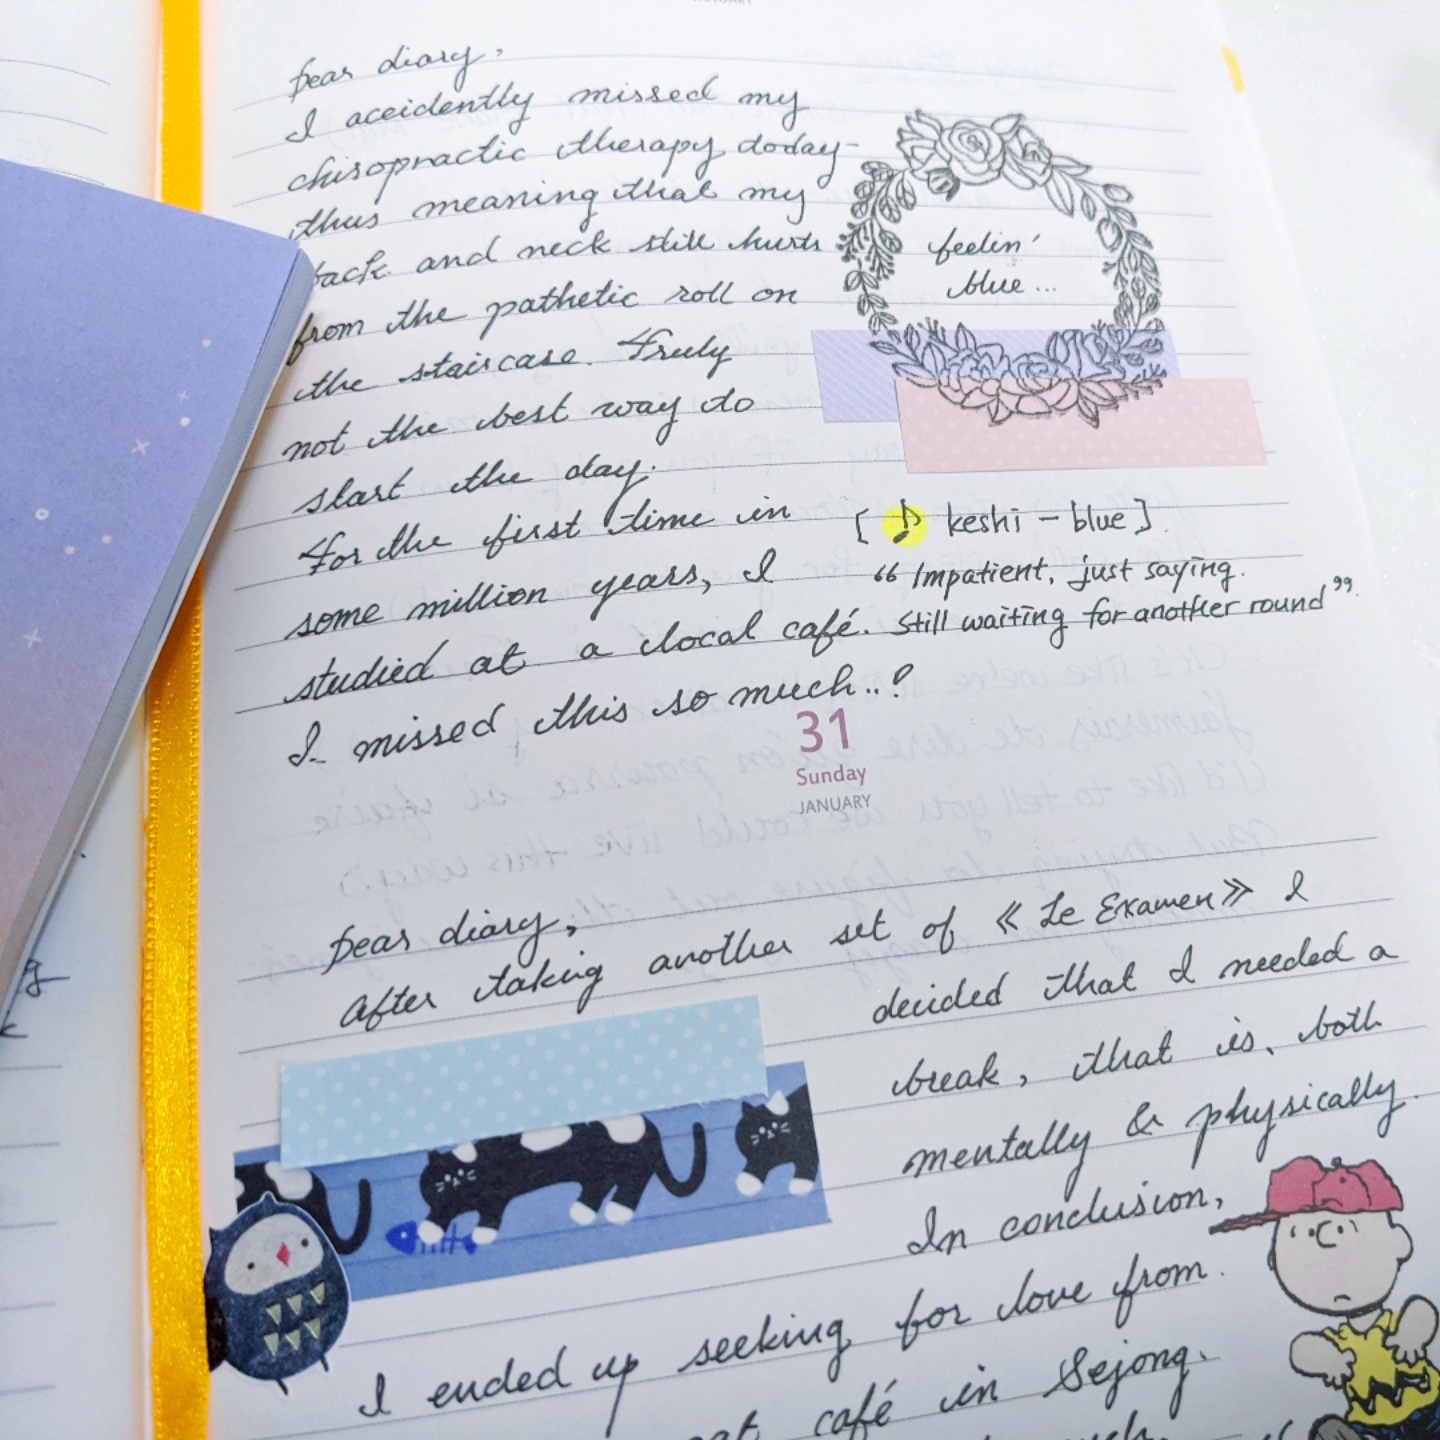 JANUARY
Dear diary,
I accidently missed my
chiropractic therapy today-
thus meaning that my
back and neck still hurts
from the pathetic roll on
the staircase. Truly
not the best way to
start the day.
For the first time in
some million years, I
studied at a local café.
I missed this so much..?
feelin'
blue...
[ ♪ keshi - blue ]
"Impatient, just saying.
Still waiting for another round"
31
Sunday
JANUARY
Dear diary,
After taking another set of « Le Examen » I
decided that I needed a
break, that is, both
mentally & physically.
In conclusion,
I ended up seeking for love from
café in Sejong.